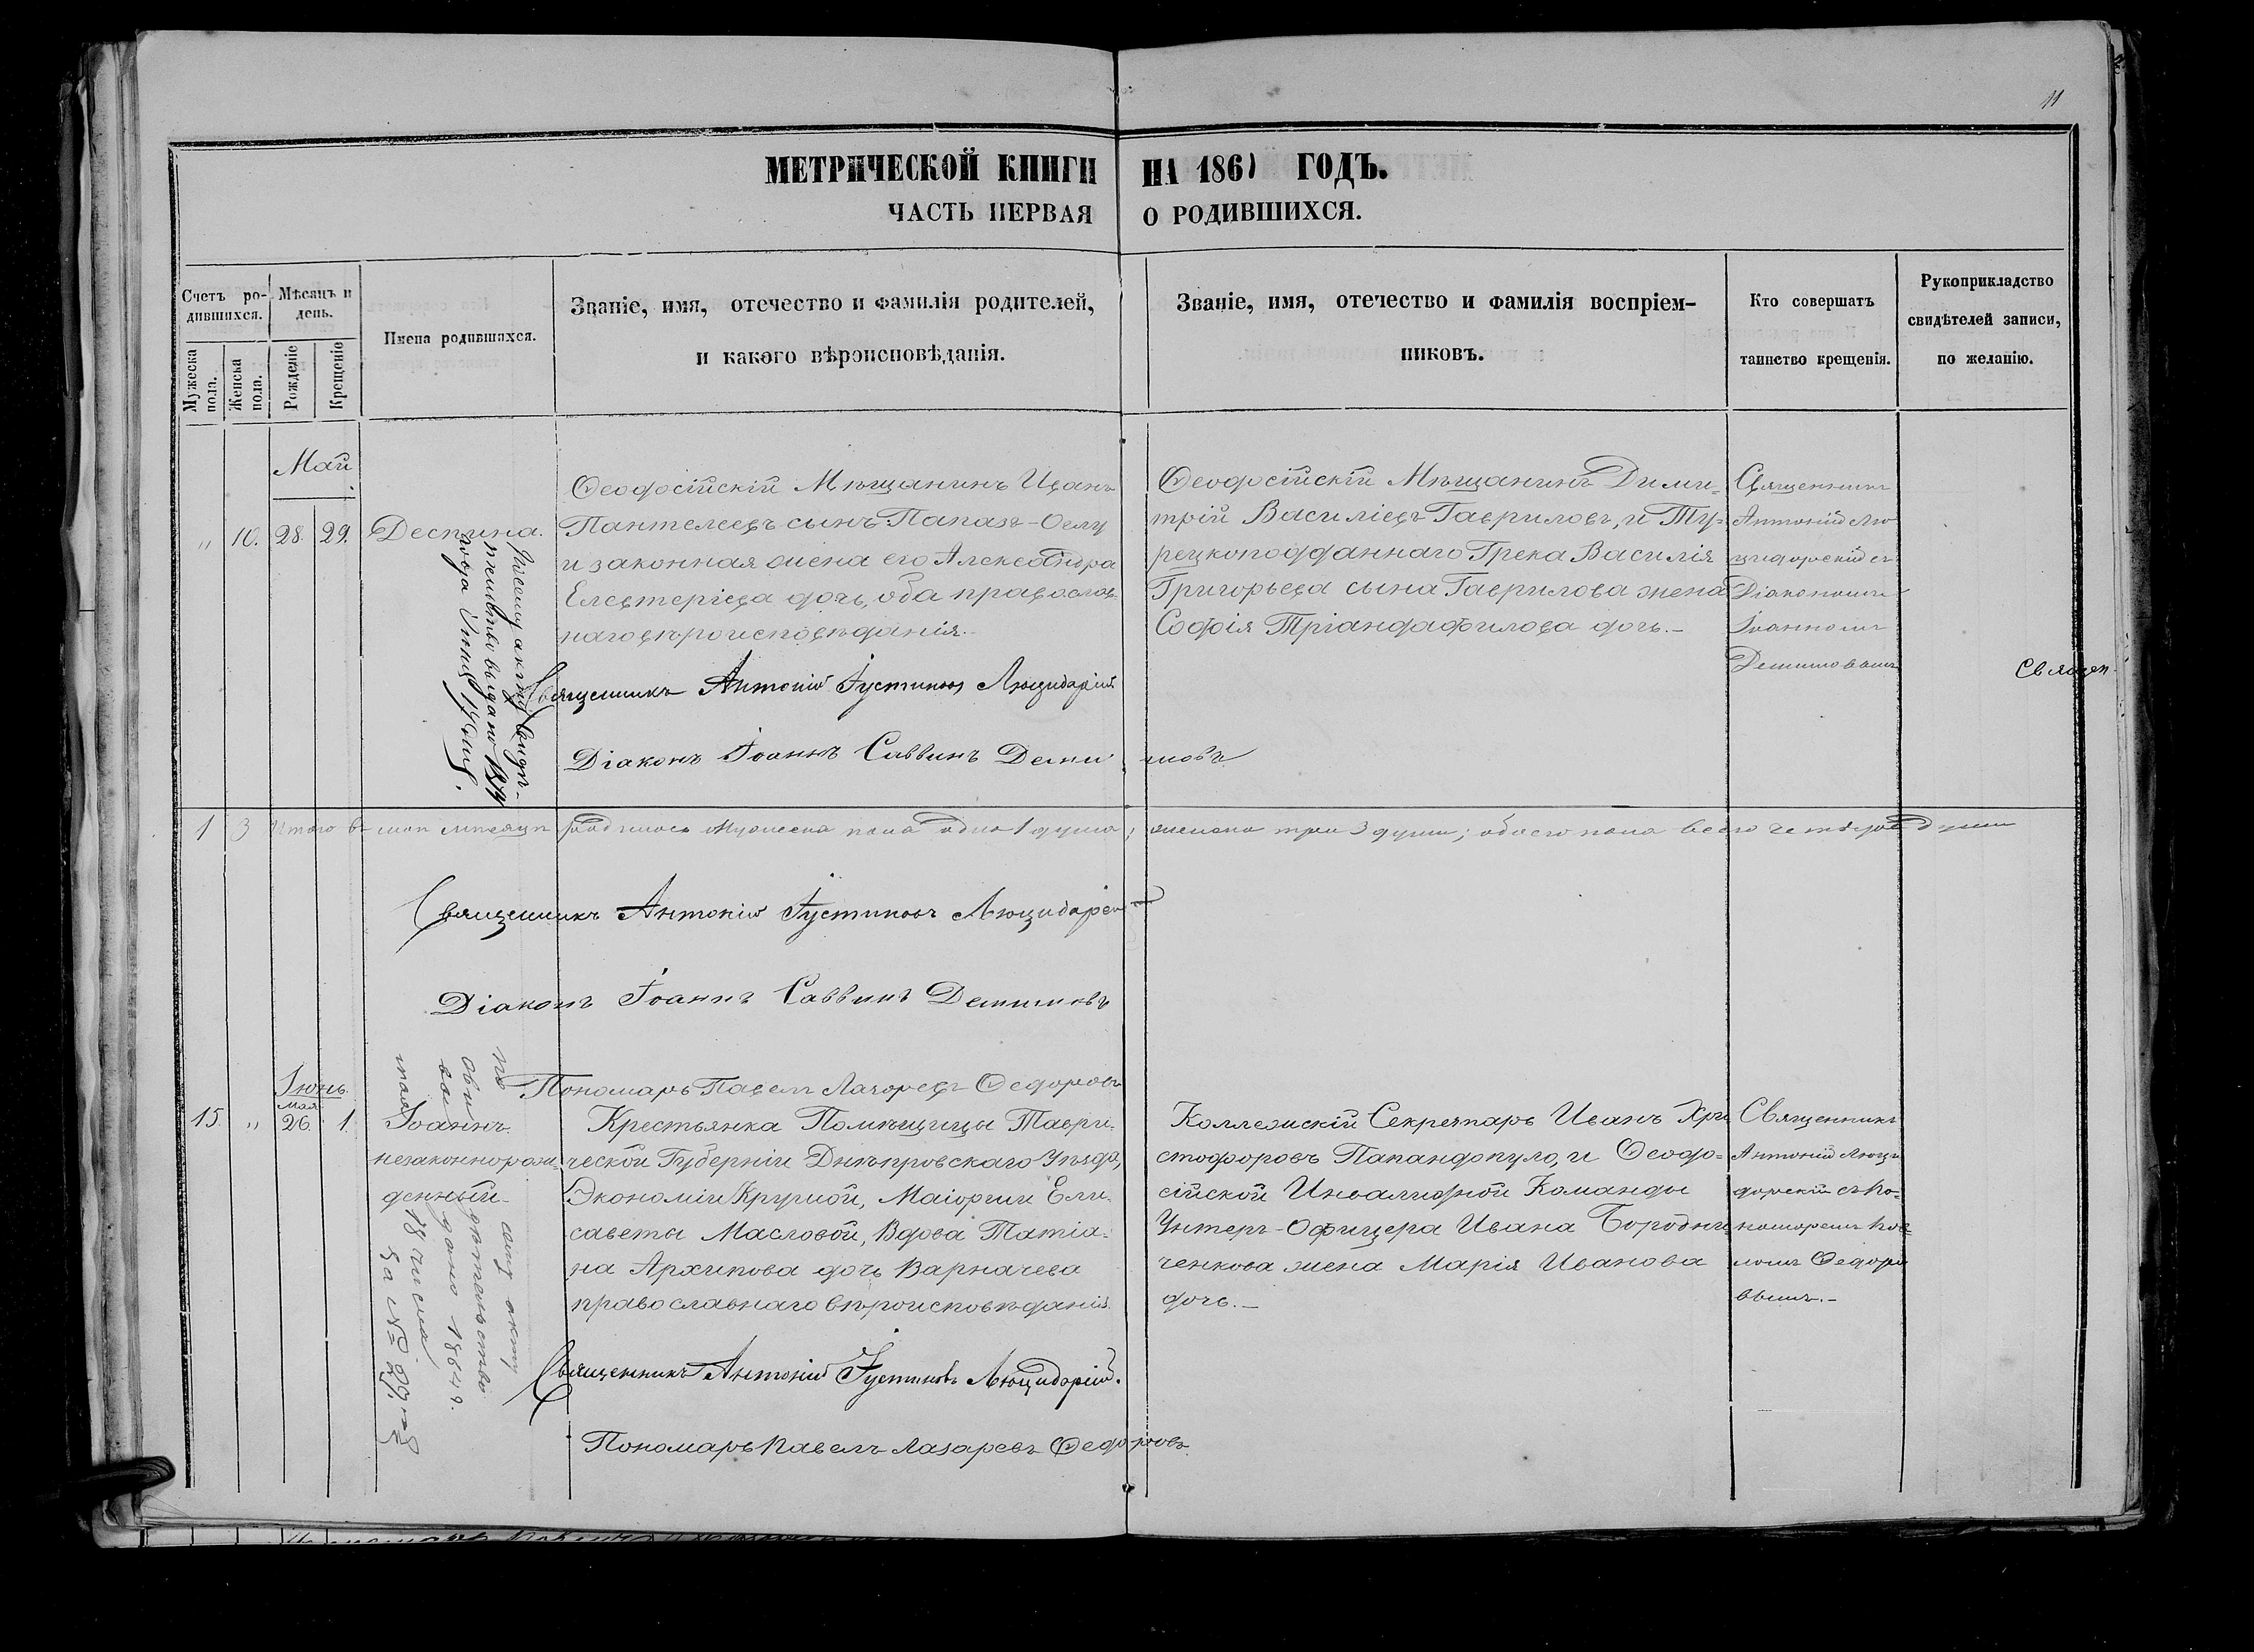 11
МЕТРИЧЕСКОЙ КНИГИ НА 1861 ГОДЪ.
ЧАСТЬ ПЕРВАЯ О РОДИВШИХСЯ.
Счетъ ро-
дившихся.
Мужеска
пола.
Женска
пола.
Мѣсяцъ и
день.
Рожденіе
Крещеніе
Имена родившихся.
Званіе, имя, отечество и фамилія родителей,
и какого вѣроисповѣданія.
Званіе, имя, отечество и фамилія воспріем-
никовъ.
Кто совершатъ
таинство крещенія.
Рукоприкладство
свидѣтелей записи,
по желанію.
Май
„ 10. 28. 29. Деспина.
Ѳеодосійскій Мѣщанинъ Иванъ
Пантелеевъ сынъ Папазъ-Оглу
и законная жена его Александра
Елевтеріева дочь, оба православ-
наго вѣроисповѣданія.
Ѳеодосійскій Мѣщанинъ Дими-
трій Василіевъ Гавриловъ, и Ту-
рецкоподданнаго Грека Василія
Григорьева сына Гаврилова жена
Софія Тріандафилова дочь.-
Священникъ
Антоній Лю
цидорскій съ
Діакономъ
Іоанномъ
Демимовымъ
Священникъ Антоній Іустиновъ Люцидарскій
Діаконъ Іоаннъ Саввинъ Демимовъ
Священ.
1 3 Итого въ маѣ мѣсяцѣ родилось мужеска пола одна 1 душа; женска три 3 души; обоего пола всего четыре души
Священникъ Антоній Іустиновъ Люцидарскій
Діаконъ Іоаннъ Саввинъ Демимовъ
Пономарь Павелъ Лазаревъ Ѳедоровъ
Іюнь.
мая
15. „ 26. 1. Іоаннъ
незаконнорож-
денный
Крестьянка Помѣщицы Таври-
ческой Губерніи Днѣпровскаго Уѣзда,
Экономіи Круглой, Маіорши Ели-
саветы Масловой, Вдова Татіа-
на Архипова дочь Варначева
православнаго вѣроисповѣданія.
Коллежскій Секретарь Иванъ Хри
стофоровъ Папандопуло, и Ѳеодо-
сійской Инвалидной Команды
Унтеръ-Офицера Ивана Бородни-
ченкова жена Марія Иванова
дочь.-
Священникъ
Антоній Люци
дорскій съ По-
номоремъ Пав-
ломъ Ѳедоро
вымъ.-
по сему акту
свидѣтельство
выдано 1864 г.
18 числа
за №
Священникъ Антоній Іустиновъ Люцидарскій.
Пономарь Павелъ Лазаревъ Ѳедоровъ.